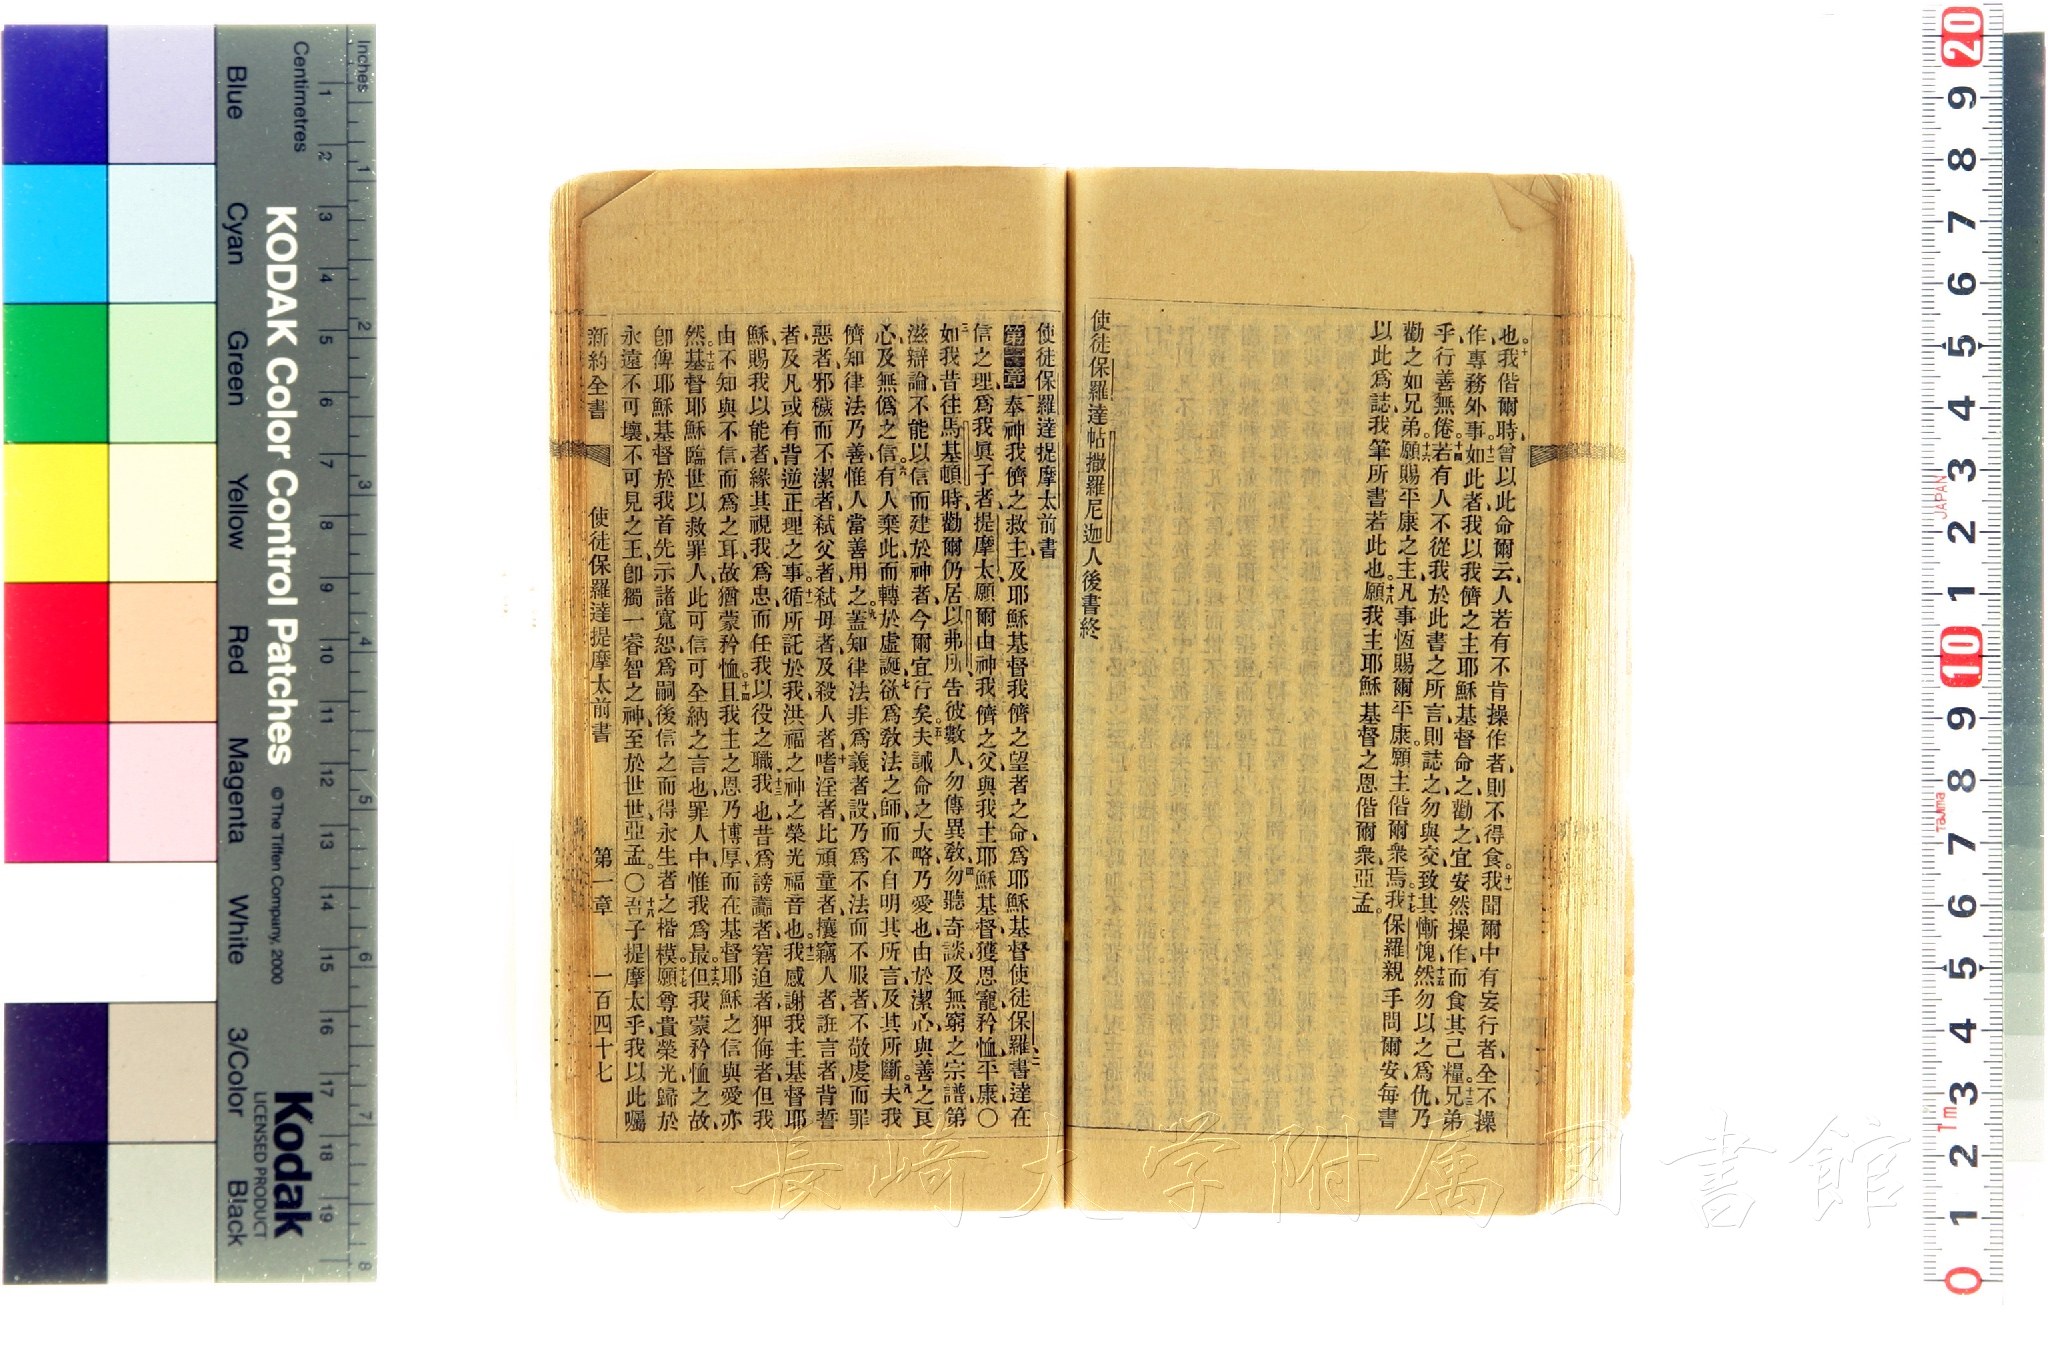 也我偕爾時曾以此命爾云人若有不肯操作者則不得食我聞爾中有妄行者全不操
作專務外事如此者我以我儕之主耶穌基督命之勸之宜安然操作而食其己糧兄弟
乎行善無倦若有人不從我於此書之所言則誌之勿與交致其慚愧然勿以之爲仇乃
勸之如兄弟願賜平康之主凡事恆賜爾平康願主偕爾衆焉我保羅親手問爾安每書
以此爲誌我筆所書若此也願我主耶穌基督之恩偕爾衆亞孟
使徒保羅達帖撒羅尼迦人後書終
使徒保羅達提摩太前書
第一章奉神我儕之救主及耶穌基督我儕之望者之命爲耶穌基督使徒保羅書達在
信之理爲我眞子者提摩太願爾由神我儕之父與我主耶穌基督獲恩寵矜恤平康〇
如我昔往馬基頓時勸爾仍居以弗所告彼數人勿傳異敎勿聽奇談及無窮之宗譜第
滋辯論不能以信而建於神者今爾宜行矣夫誡命之大略乃愛也由於潔心與善之良
心及無僞之信有人棄此而轉於虛誕欲爲敎法之師而不自明其所言及其所斷夫我
儕知律法乃善惟人當善用之蓋知律法非爲義者設乃爲不法而不服者不敬虔而罪
惡者邪穢而不潔者弒父者弒母者及殺人者嗜淫者比頑童者攘竊人者誑言者背誓
者及凡或有背逆正理之事循所託於我洪福之神之榮光福音也我感謝我主基督耶
穌賜我以能者緣其視我爲忠而任我以役之職我也昔爲謗讟者窘迫者狎侮者但我
由不知與不信而爲之耳故猶蒙矜恤且我主之恩乃博厚而在基督耶穌之信與愛亦
然基督耶穌臨世以救罪人此可信可全納之言也罪人中惟我爲最但我蒙矜恤之故
卽俾耶穌基督於我首先示諸寬恕爲嗣後信之而得永生者之楷模願尊貴榮光歸於
永遠不可壞不可見之王卽獨一睿智之神至於世世亞孟〇吾子提摩太乎我以此囑
新約全書 使徒保羅達提摩太前書 第一章 一百四十七
Inches
Centimetres
Blue Cyan Green Yellow Red Magenta White 3/Color Black
KODAK Color Control Patches © The Tiffen Company, 2000
Kodak
LICENSED PRODUCT
JAPAN
Tajima
Tm
長崎大学附属図書館